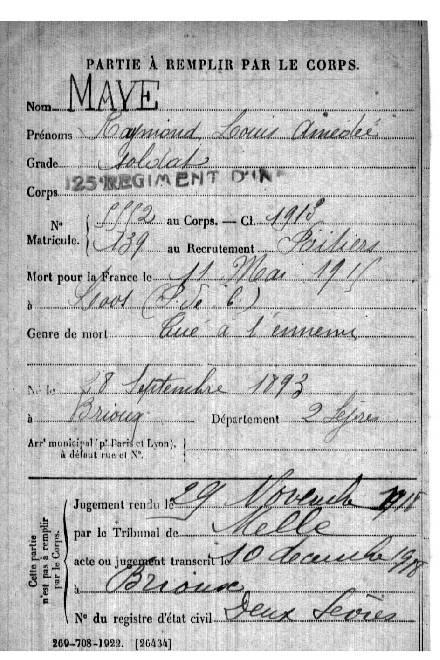 PARTIE À REMPLIR PAR LE CORPS.
Nom MAYE
Prénoms Raymond Louis Amédée
Grade Soldat
Corps 125e REGIMENT D'IN
N° Matricule. { au Corps. — Cl. 1913
139 au Recrutement Poitiers
Mort pour la France le 11 Mai 1915
à Loos (P. de C)
Genre de mort Tué à l'ennemi
Né le 28 Septembre 1893
à Brioux Département 2 Sèvres
Arrt municipal (pr Paris et Lyon),
à défaut rue et N°.
Cette partie n'est pas à remplir par le Corps.
Jugement rendu le 29 Novembre
par le Tribunal de Melle
acte ou jugement transcrit le 10 décembre 1918
à Brioux
N° du registre d'état civil Deux Sèvres
269-708-1922. [26434]